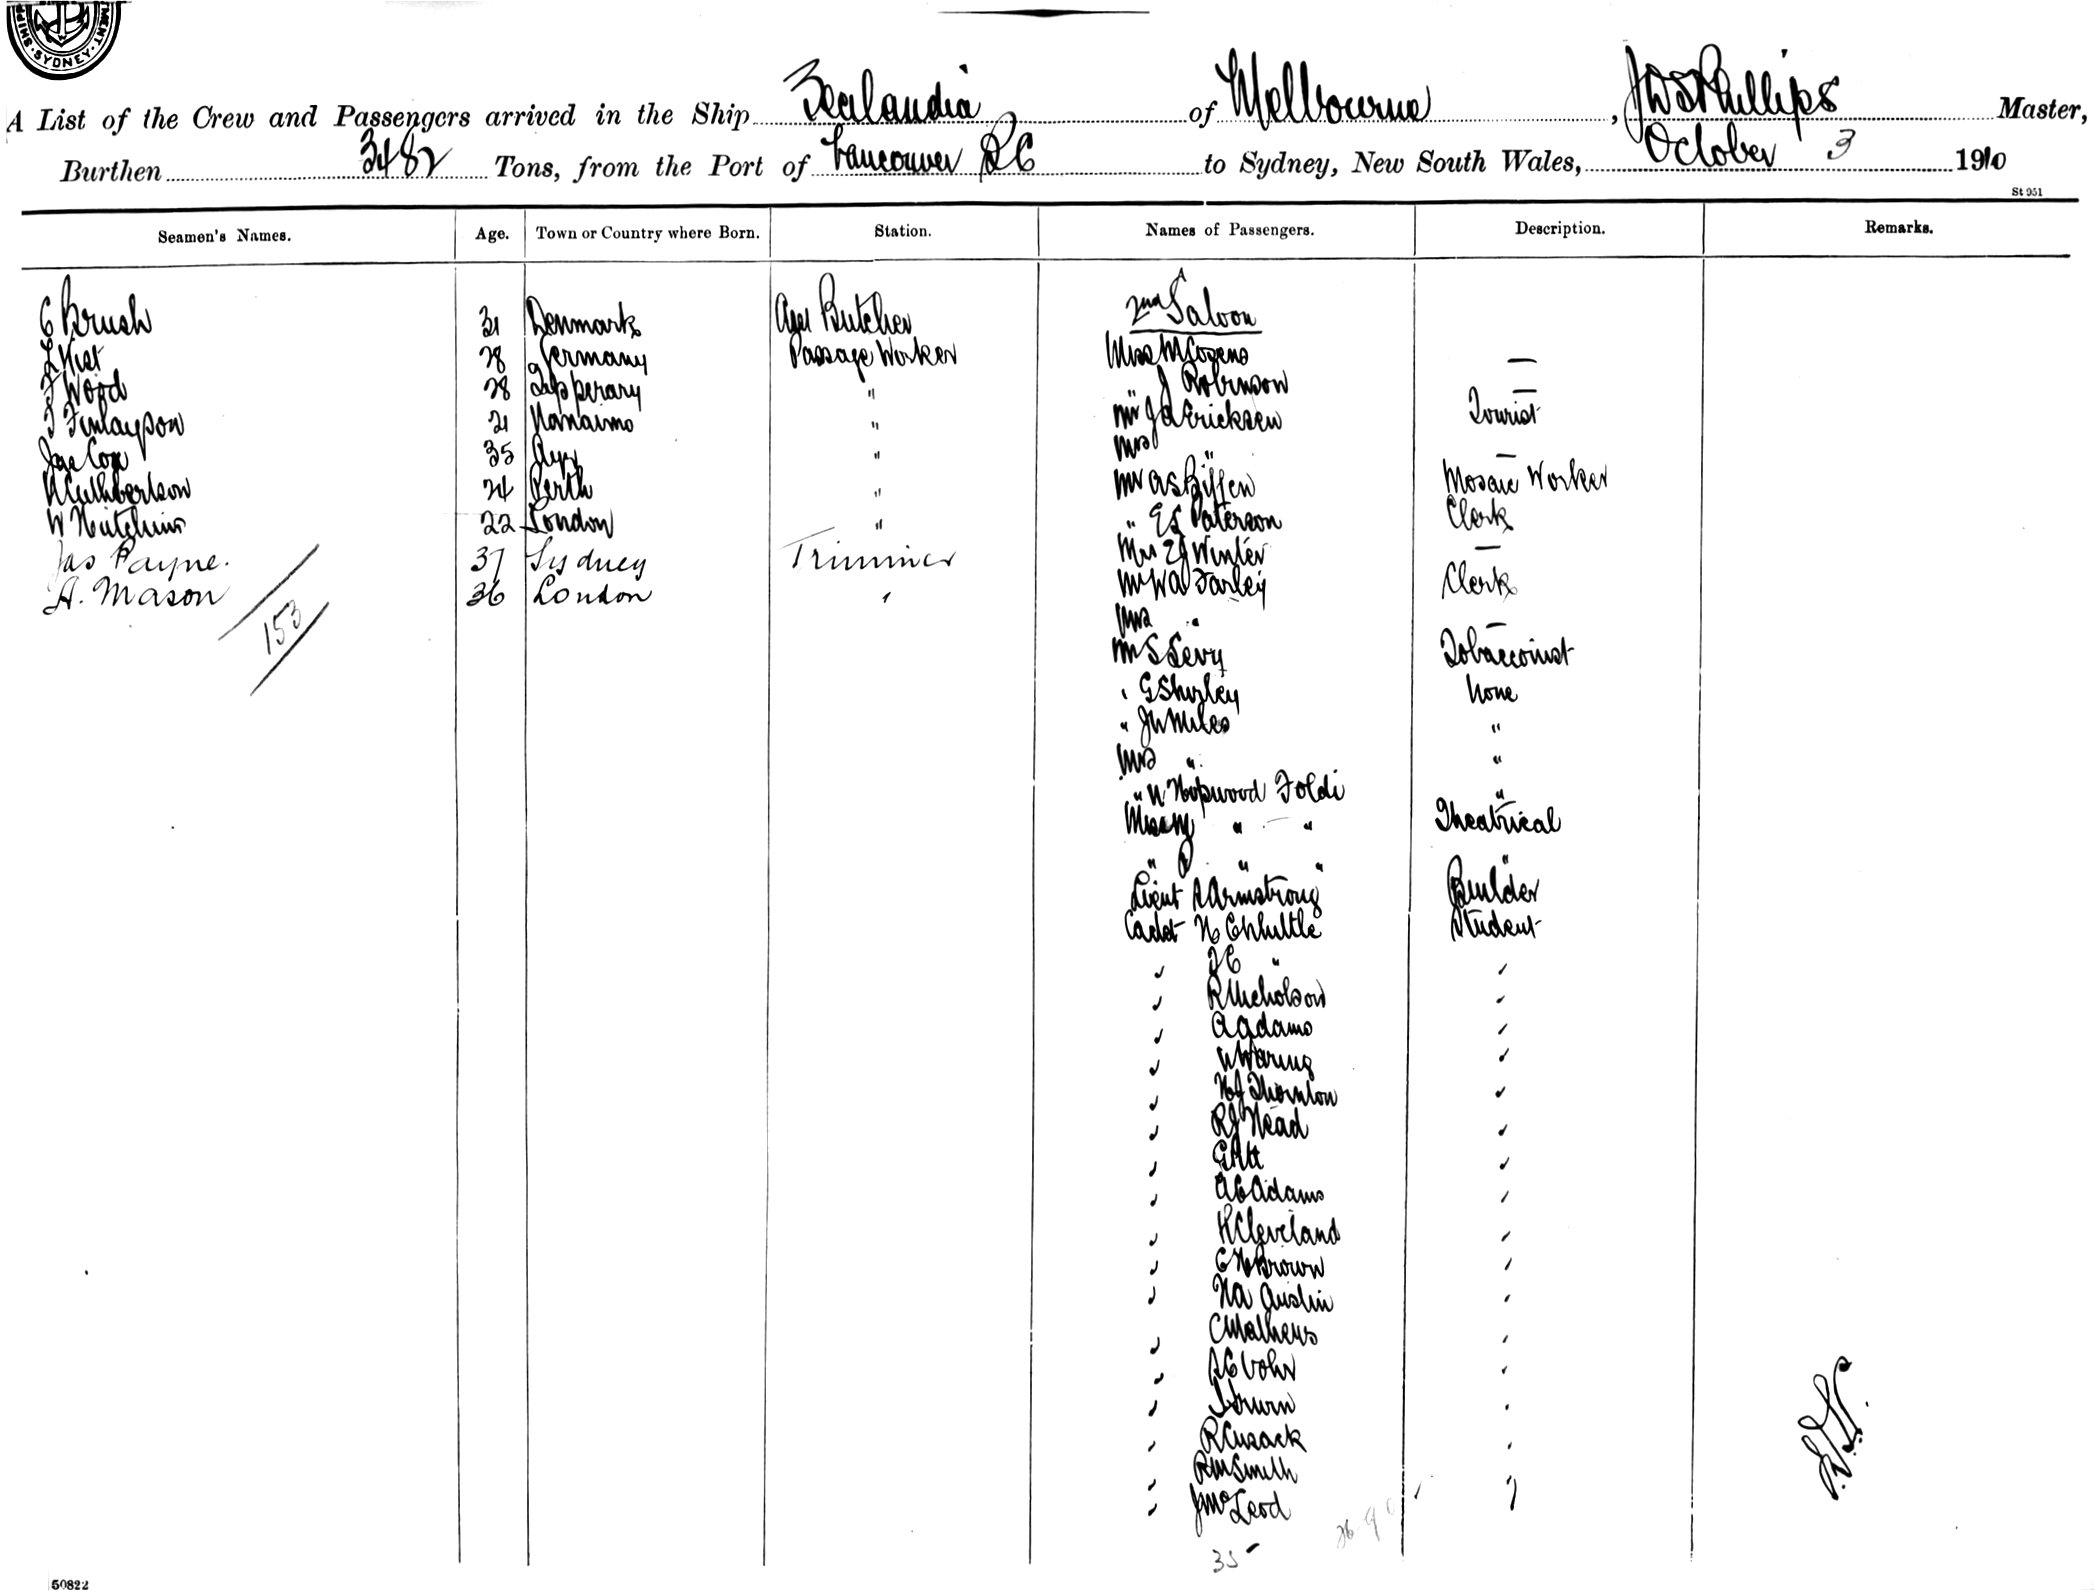 SHIPP MENT. SYDNEY
A List of the Crew and Passengers arrived in the Ship Zealandia of Melbourne, J D S Phillips Master,
Burthen 3482 Tons, from the Port of Vancouver BC to Sydney, New South Wales, October 3 1910
St 951
Seamen's Names. Age. Town or Country where Born. Station. Names of Passengers. Description. Remarks.
2nd Saloon
C Brush 31 Denmark Butcher
28 Germany Passage Worker Miss M Cozens —
Wood 28 Tipperary " " J Robinson —
Finlayson 21 Nanaimo " Mr J A Ericksen Tourist
Jas Cox 35 Ayr " Mrs " —
Cuthbertson 24 Perth " Mr A S Biffen Mosaic Worker
W Hutchins 22 London " " E S Paterson Clerk
Jas Payne. 37 Sydney Trimmer Mrs E J Winter —
A. Mason 36 London " Mr W A Farley Clerk
153
Mrs " —
Mr S Levy Tobacconist
" G Shirley None
" J W Miles "
Mrs " "
" N Hopwood Foldi "
Miss M " " Theatrical
" P " " "
Lieut A Armstrong Builder
Cadet H C Whittle Student
" J C " "
" R Nicholson "
" A Adams "
" W Waring "
" H J Thornton "
" R J Head "
" G Pitt "
" A C Adams "
" H Cleveland "
" C H Brown "
" H A Austin "
" C Mathews "
" A C Vohr "
" "
" R Cusack "
" R W Smith "
" J McLeod "
35
50822